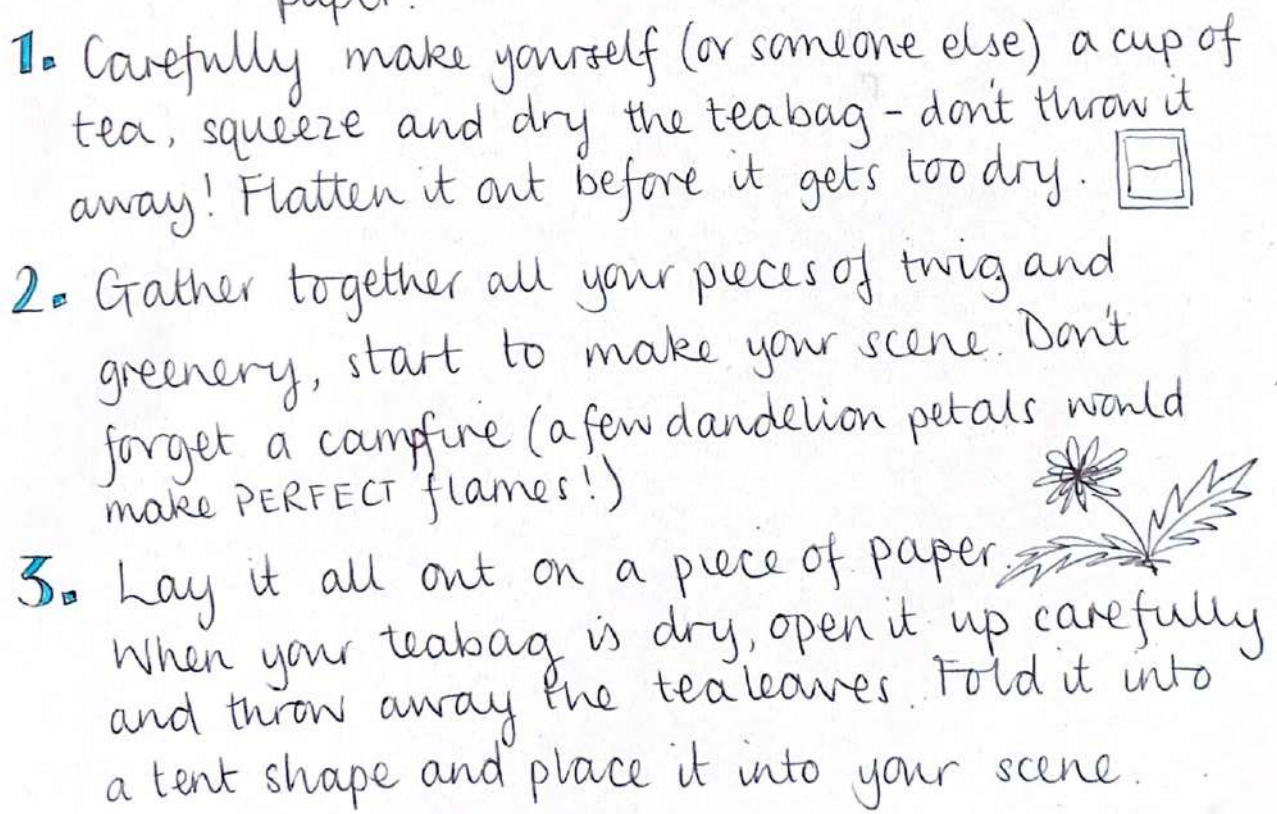 paper.
1. Carefully make yourself (or someone else) a cup of
tea, squeeze and dry the teabag - don't throw it
away! Flatten it out before it gets too dry.
2. Gather together all your pieces of twig and
greenery, start to make your scene. Don't
forget a campfire (a few dandelion petals would
make PERFECT flames!)
3. Lay it all out on a piece of paper.
When your teabag is dry, open it up carefully
and throw away the tealeaves. Fold it into
a tent shape and place it into your scene.